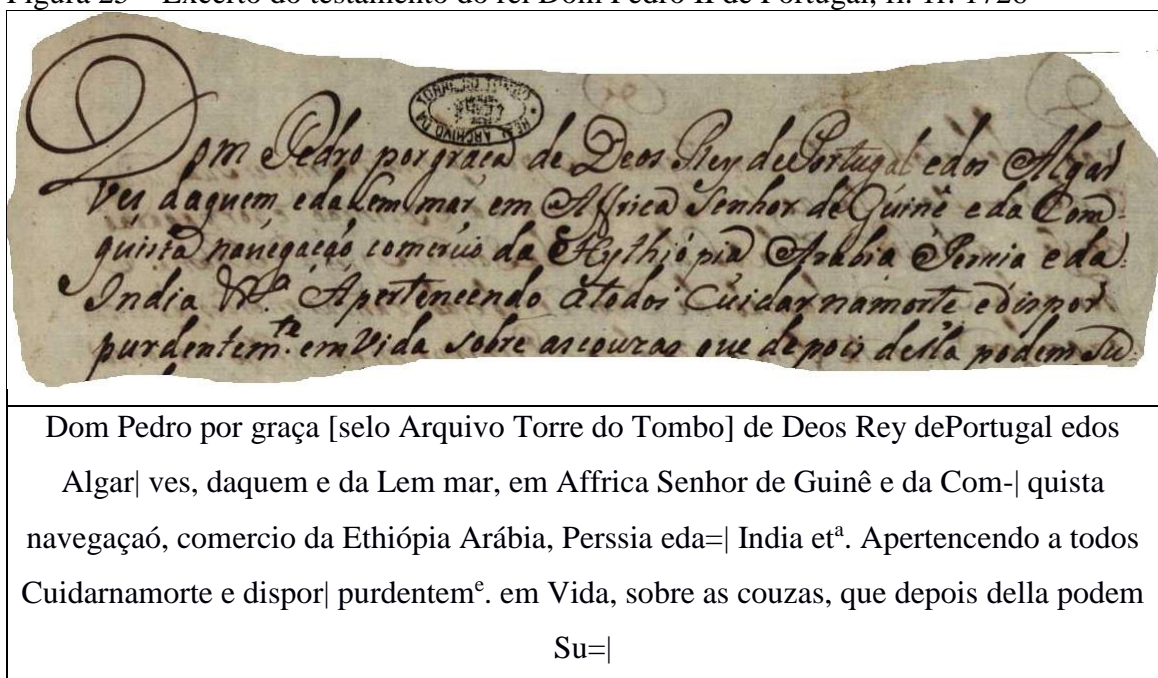 Figura 25 – Excerto do testamento do rei Dom Pedro II de Portugal, fl. 1r. 1726
TORRE DO TOMBO
REAL ARCHIVO DA
Dom Pedro por graça de Deos Rey de Portugal e dos Algar
ves daquem e da Lem mar em Affrica Senhor de Guinê e da Com=
quista navegação comercio da Ethiópia Arabia Perssia e da=
India &ª Apertencendo a todos Cuidar na morte e dispor
purdentemte. em Vida sobre as couzas que depois della podem Su=
Dom Pedro por graça [selo Arquivo Torre do Tombo] de Deos Rey dePortugal edos
Algar| ves, daquem e da Lem mar, em Affrica Senhor de Guinê e da Com-| quista
navegaçaó, comercio da Ethiópia Arábia, Perssia eda=| India etª. Apertencendo a todos
Cuidarnamorte e dispor| purdentemᵉ. em Vida, sobre as couzas, que depois della podem
Su=|